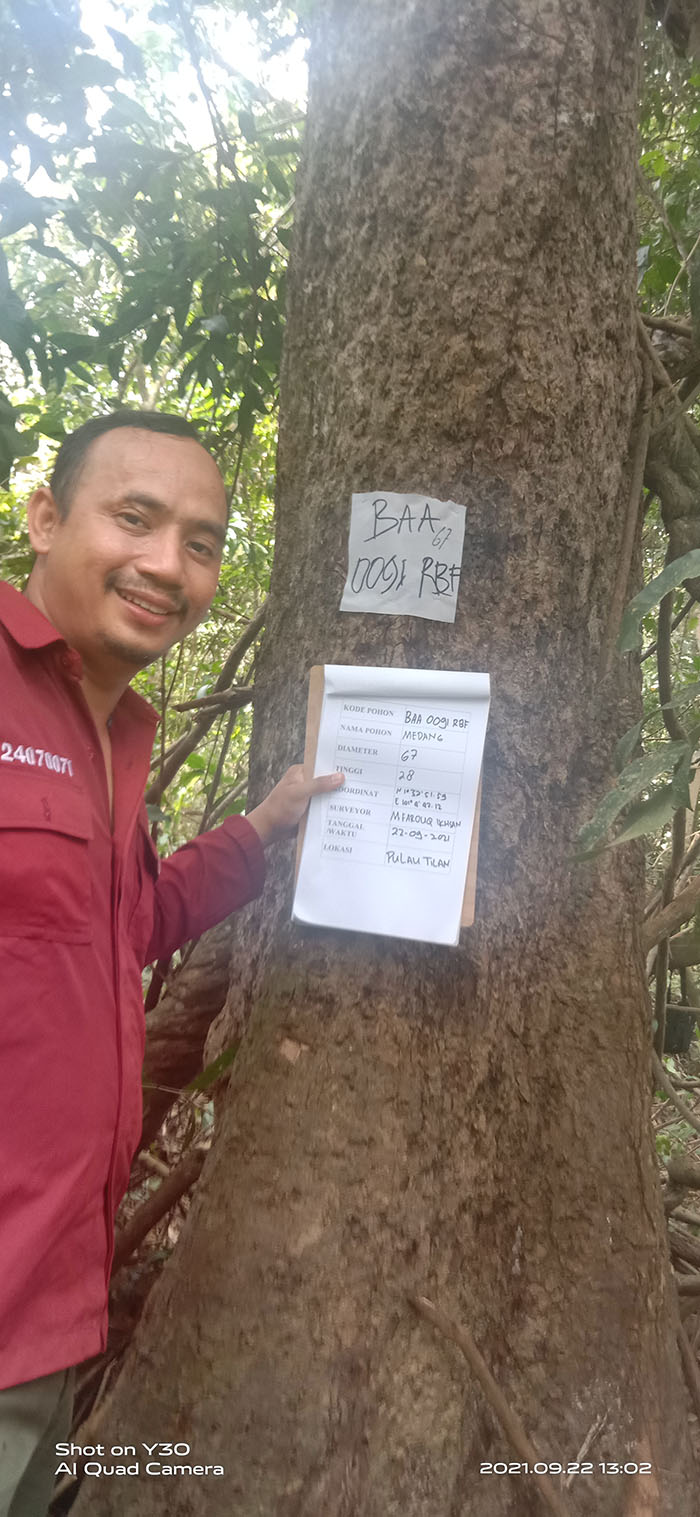 BAA 67
0091 RBF
KODE POHON BAA 0091 RBF
NAMA POHON MEDANG
DIAMETER 67
TINGGI 28
KOORDINAT
SURVEYOR
TANGGAL 22-09-2021
/WAKTU
LOKASI PULAU TILAN
24070071
Shot on Y30
AI Quad Camera
2021.09.22 13:02